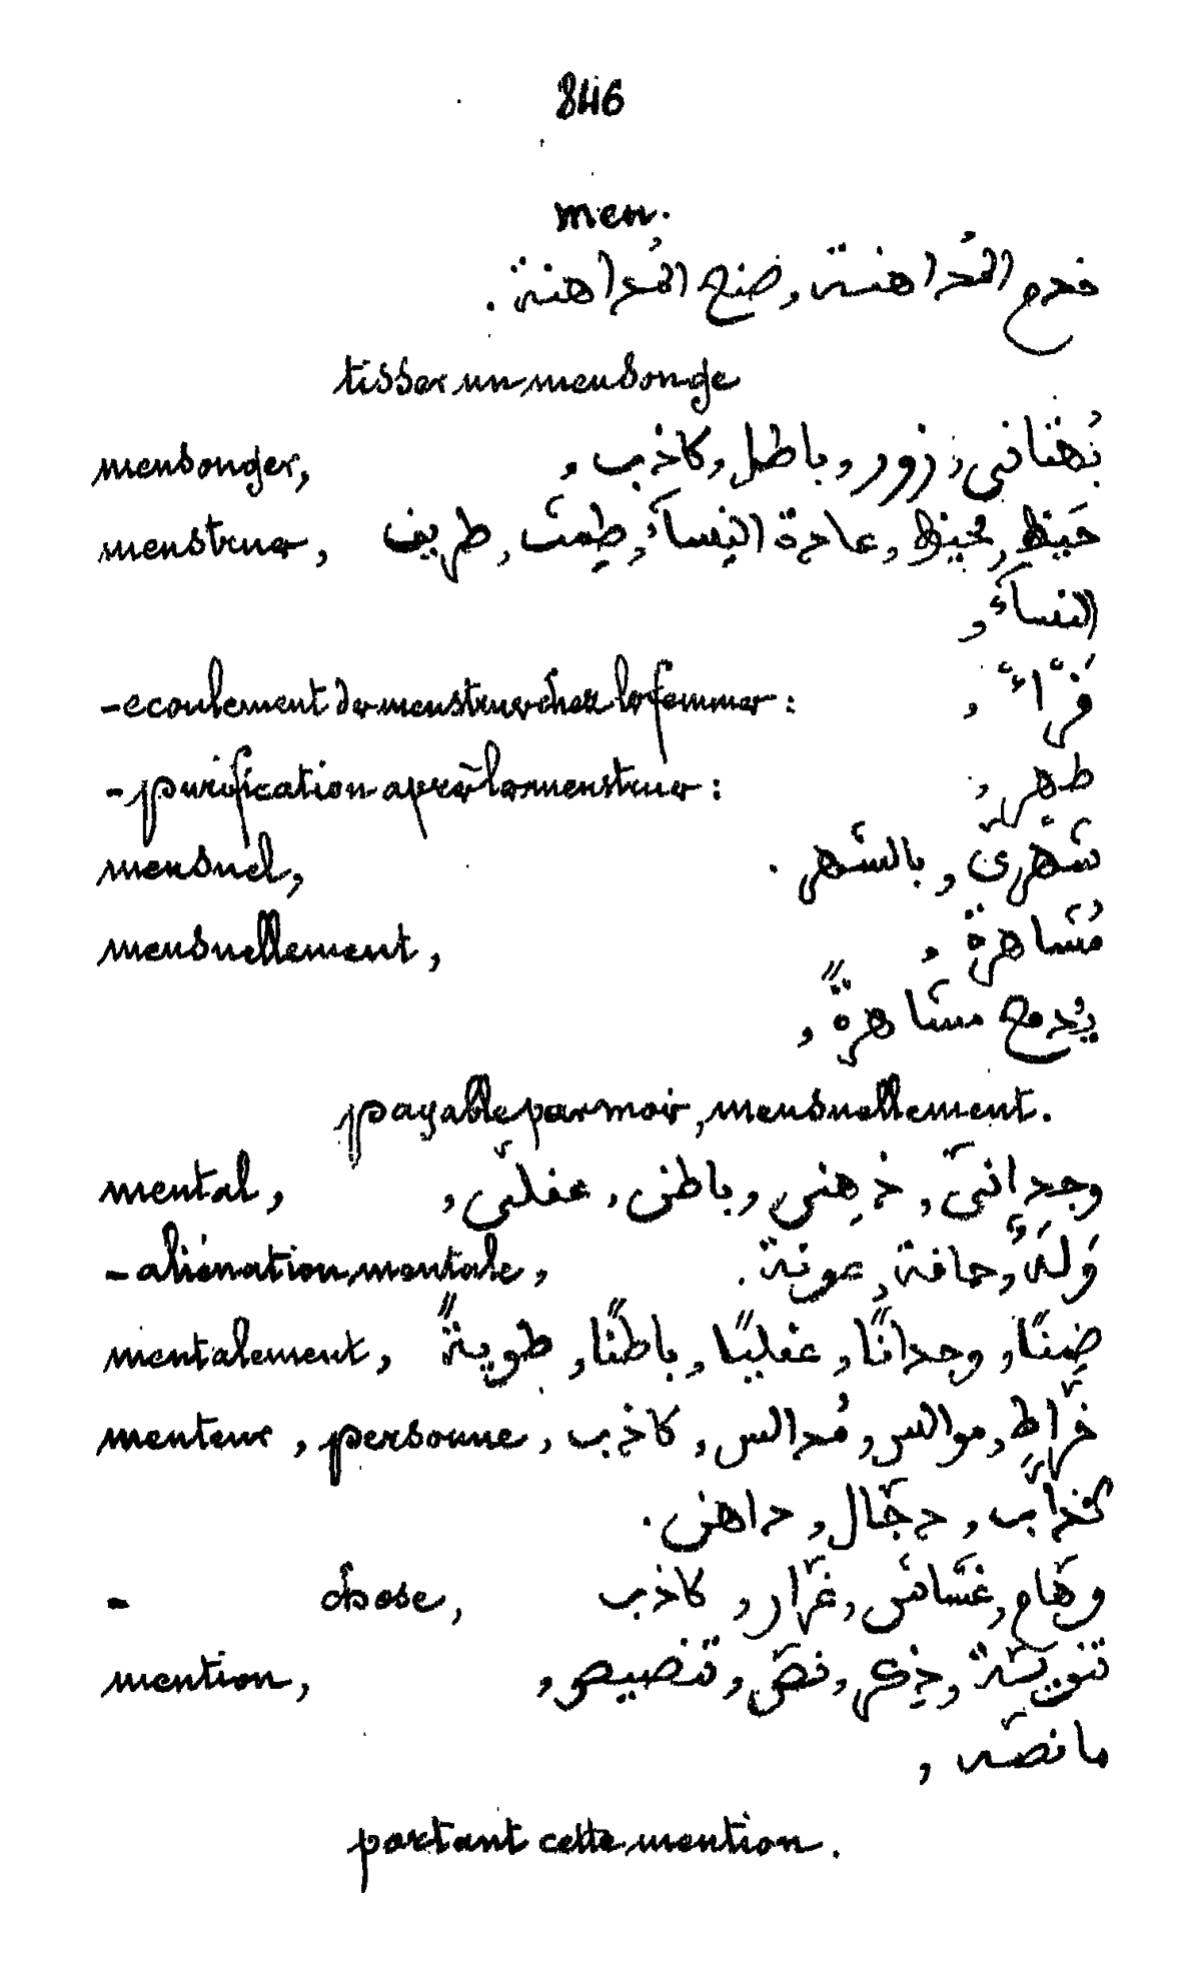 846
men.
خدم المُداهنة, صنع المُداهنة.
tisser un mensonge
mensonger, بُهتاني, زور, باطل, كاذب,
menstrue, حَيظ, مَحيظ, عادة النِساءُ, طِمث, طريف
النساءُ,
- ecoulement de menstrue chez la femme :
- purification après la menstrue : طهر,
mensuel, شهريّ, بالشهر.
mensuellement, مُشاهرة,
يُدمع مشاهرةً,
payable par mois, mensuellement.
mental, وجدانيّ, ذِهني, باطن, عقليّ,
- aliénation mentale, وَلَهٌ, حمافة,
mentalement, ضِمنًا, وجدانًا, عقليًا, باطنًا, طويةً
menteur, personne, خرّاط, موالس, مُدالس, كاذب,
كذّاب, دجّال, داهن.
- chose, وهّام, غشّاش, غرّار, كاذب
mention, ذِكر, نصّ, تنصيص,
ما نصّه,
portant cette mention.